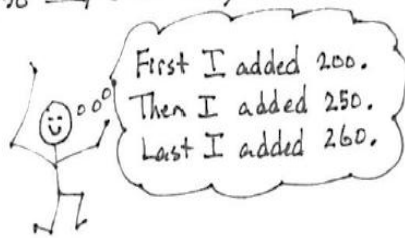 First I added 200.
Then I added 250.
Last I added 260.